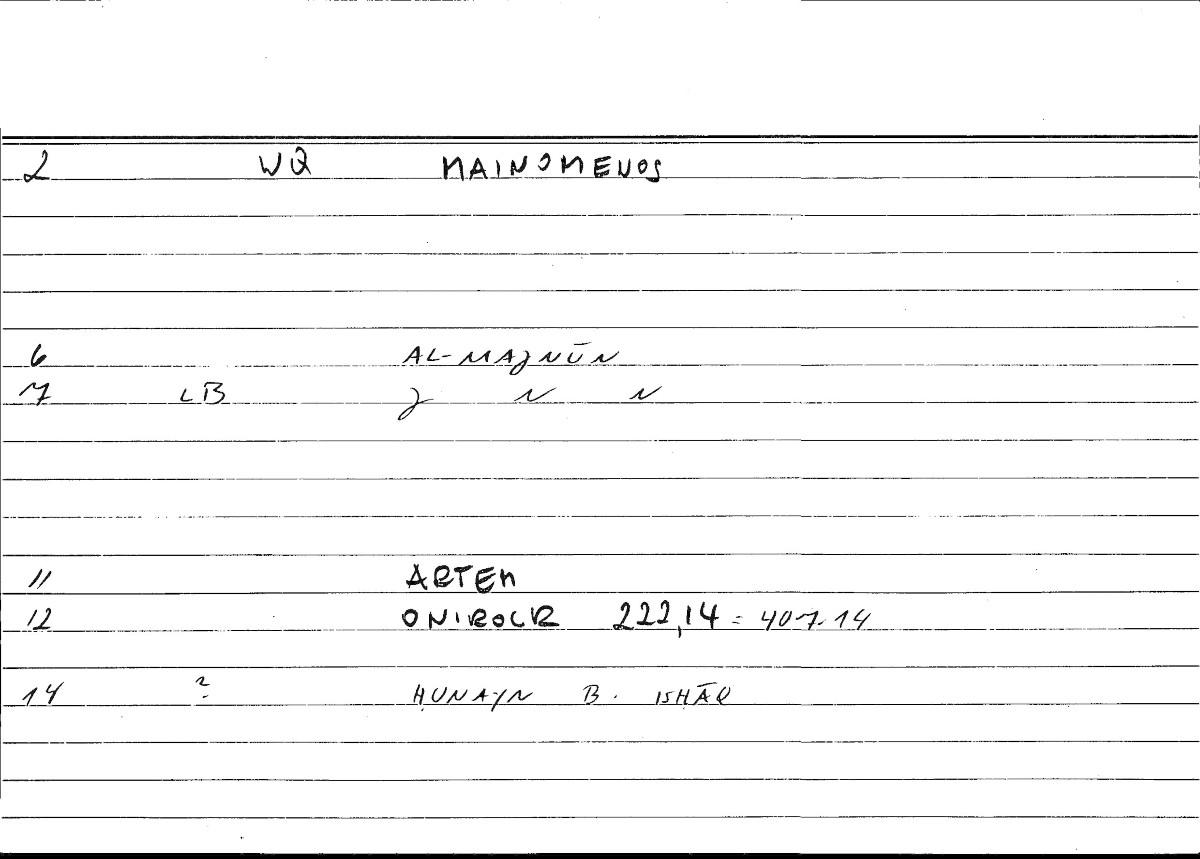 2 WQ MAINOMENOS
6 AL-MAJNŪN
7 LB J N N
11 ARTEM
12 ONIROCR 222,14 = 407.14
14 ? ḤUNAYN B. ISḤĀQ